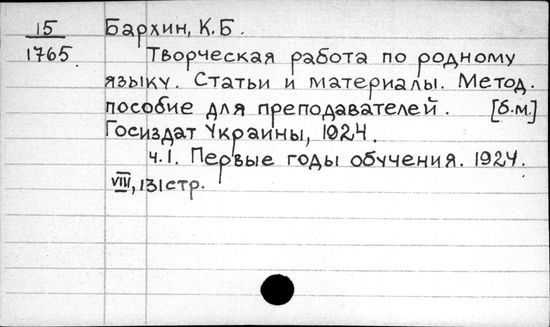 15 Бархин, К.Б.
1765. Творческая работа по родному
языку. Статьи и материалы. Метод.
пособие для преподавателей. [б.м.]
Госиздат Украины, 1924.
ч.1. Первые годы обучения. 1924.
VIII, 131 стр.